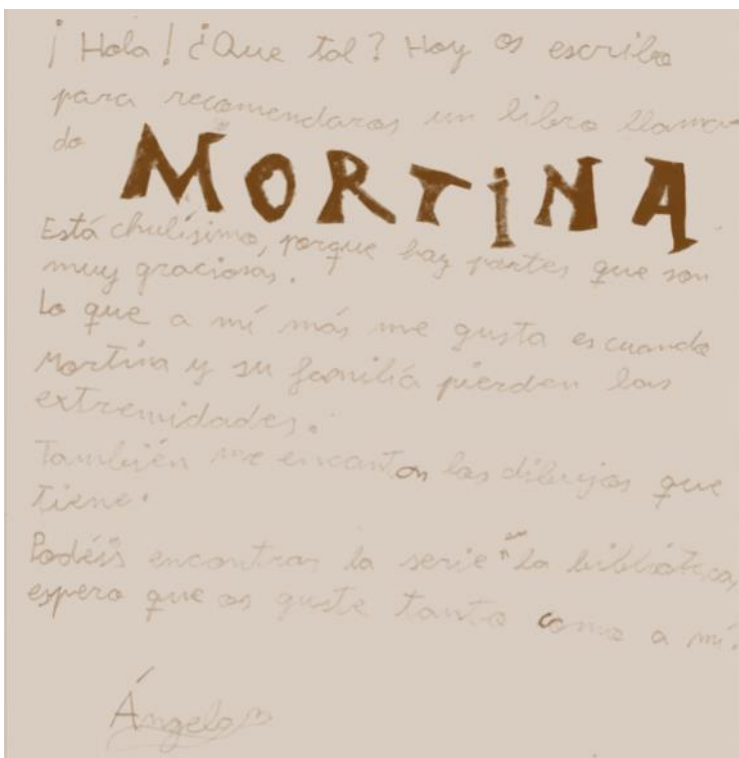 ¡Hola! ¿Que tal? Hoy os escribo
para recomendaros un libro llama-
do MORTINA
Está chulísimo, porque hay partes que son
muy graciosas.
Lo que a mí más me gusta es cuando
Mortina y su familiá pierden las
extremidades.
También me encantan los dibujos que
tiene.
Podéis encontrar la serie en la biblioteca,
espero que os guste tanto como a mí.
Ángela